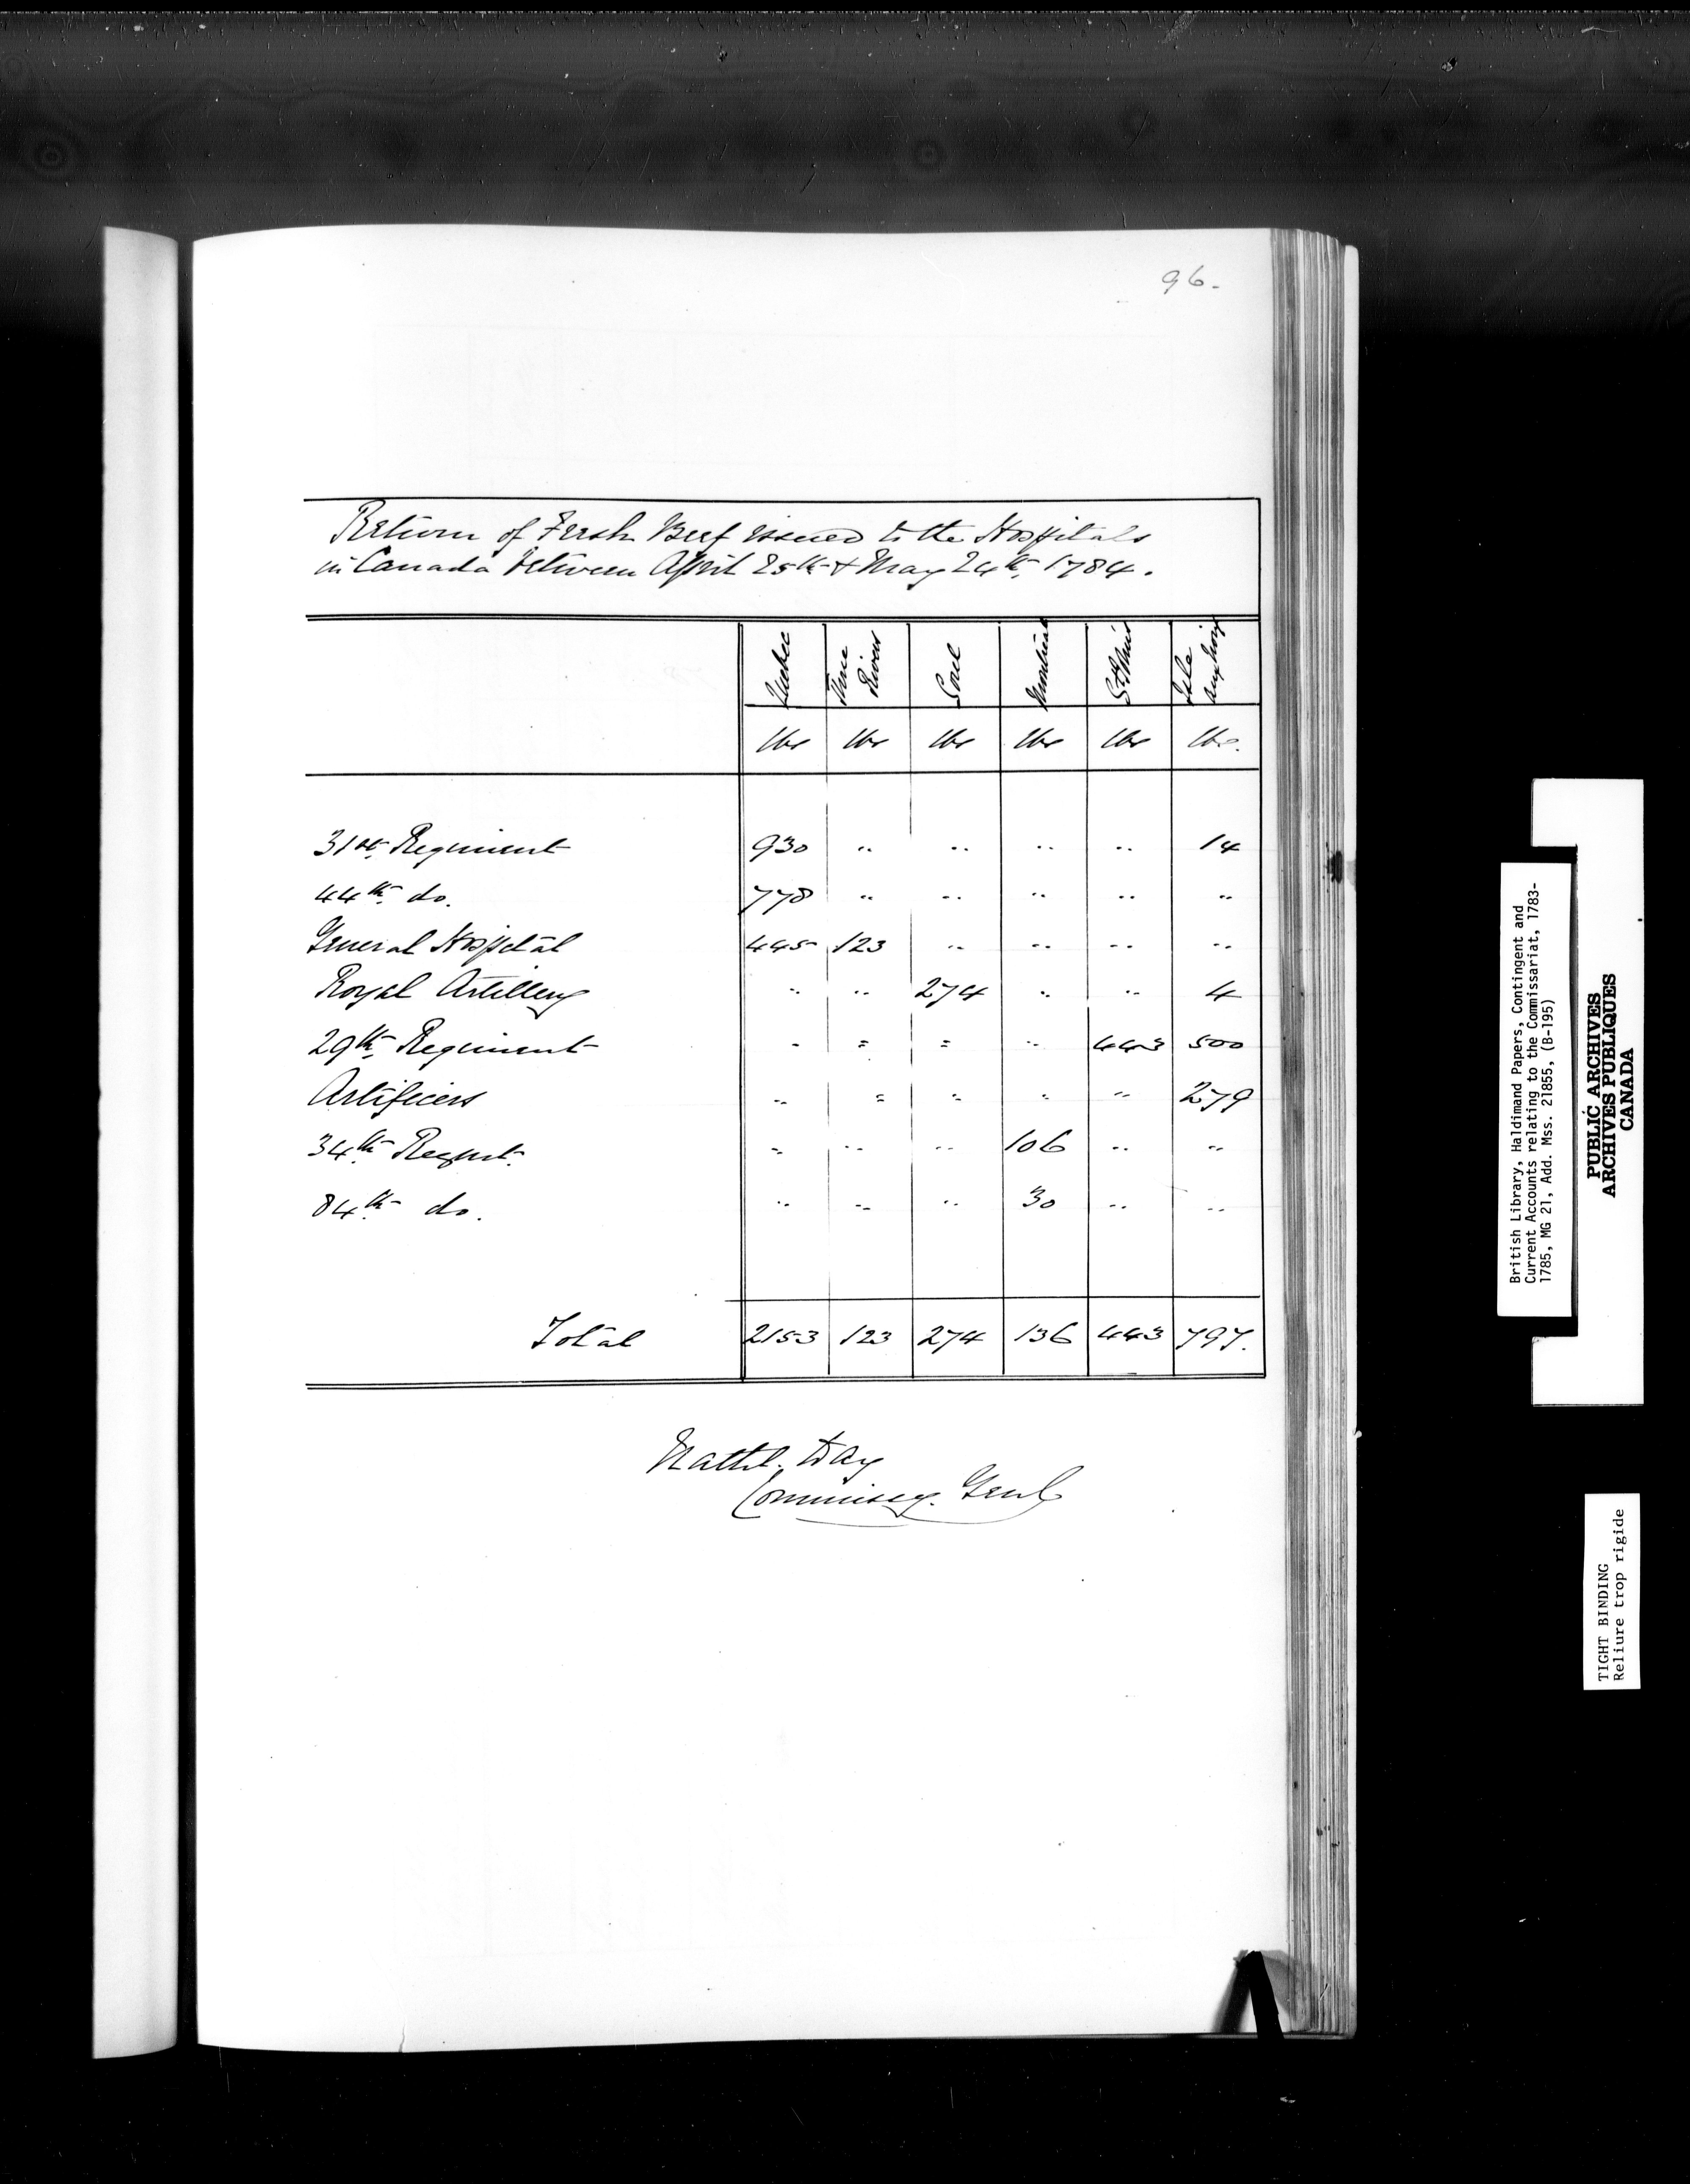 96.
Return of Fresh Beef issued to the Hospitals
in Canada between April 25th & May 24th 1784.
Quebec Three Rivers Sorel Montreal St. Johns Isle aux Noix
lbs lbs lbs lbs lbs lbs.
31st. Regiment 930 " " " " 14
44th do. 778 " " " " "
General Hospital 445 123 " " " "
Royal Artillery " " 274 " " 4
29th. Regiment " " " " 443 500
Artificers " " " " " 279
34th. Regmt. " " " 106 " "
84th. do. " " " 30 " "
Total 2153 123 274 136 443 797.
Nathl. Day
Commissy. Genl
British Library, Haldimand Papers, Contingent and
Current Accounts relating to the Commissariat, 1783-
1785, MG 21, Add. Mss. 21855, (B-195)
PUBLIC ARCHIVES
ARCHIVES PUBLIQUES
CANADA
TIGHT BINDING
Reliure trop rigide